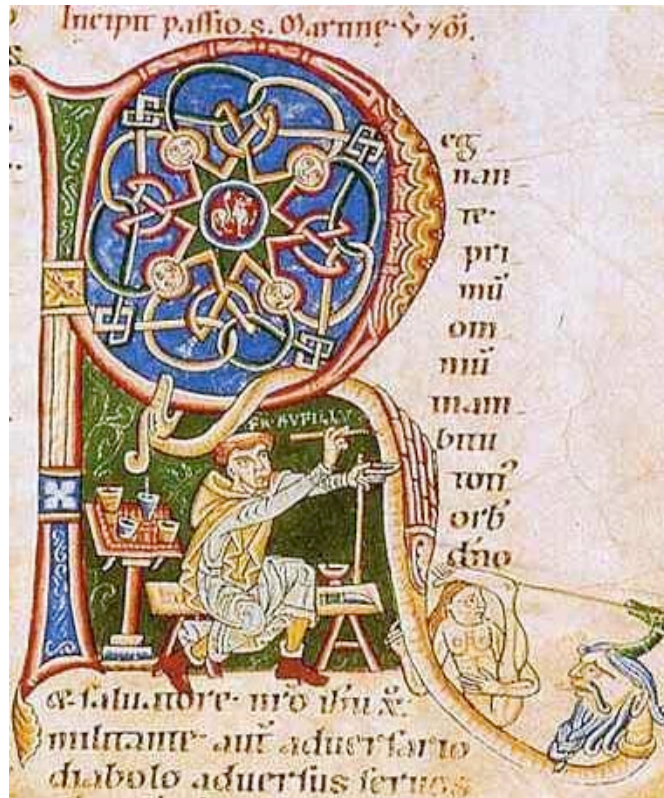 Incipit passio. s. Martine. v̄
R
eg
nan
te·
pri
mū
om
niū
inam
bitu
toti᾽
orb᾽
dn̄o
FR·RVFILLVS
& saluatore· nr̄o ih̄u x̄·
militante· aut̄ aduersario
diabolo aduersus seruos